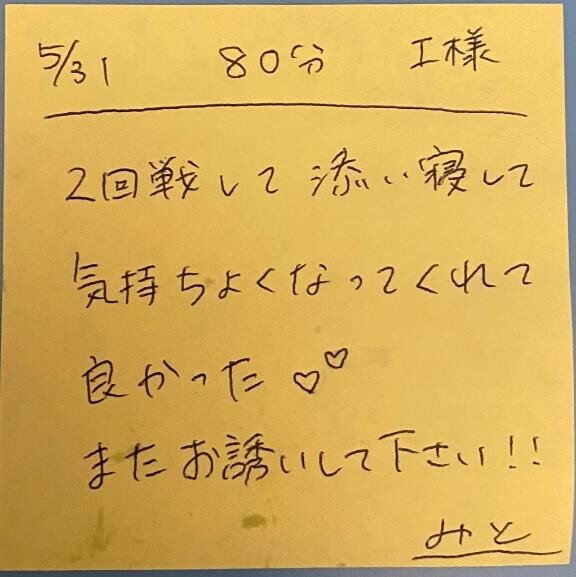 5/31 80分 I様
2回戦して添い寝して
気持ちよくなってくれて
良かった♡♡
またお誘いして下さい!!
みと